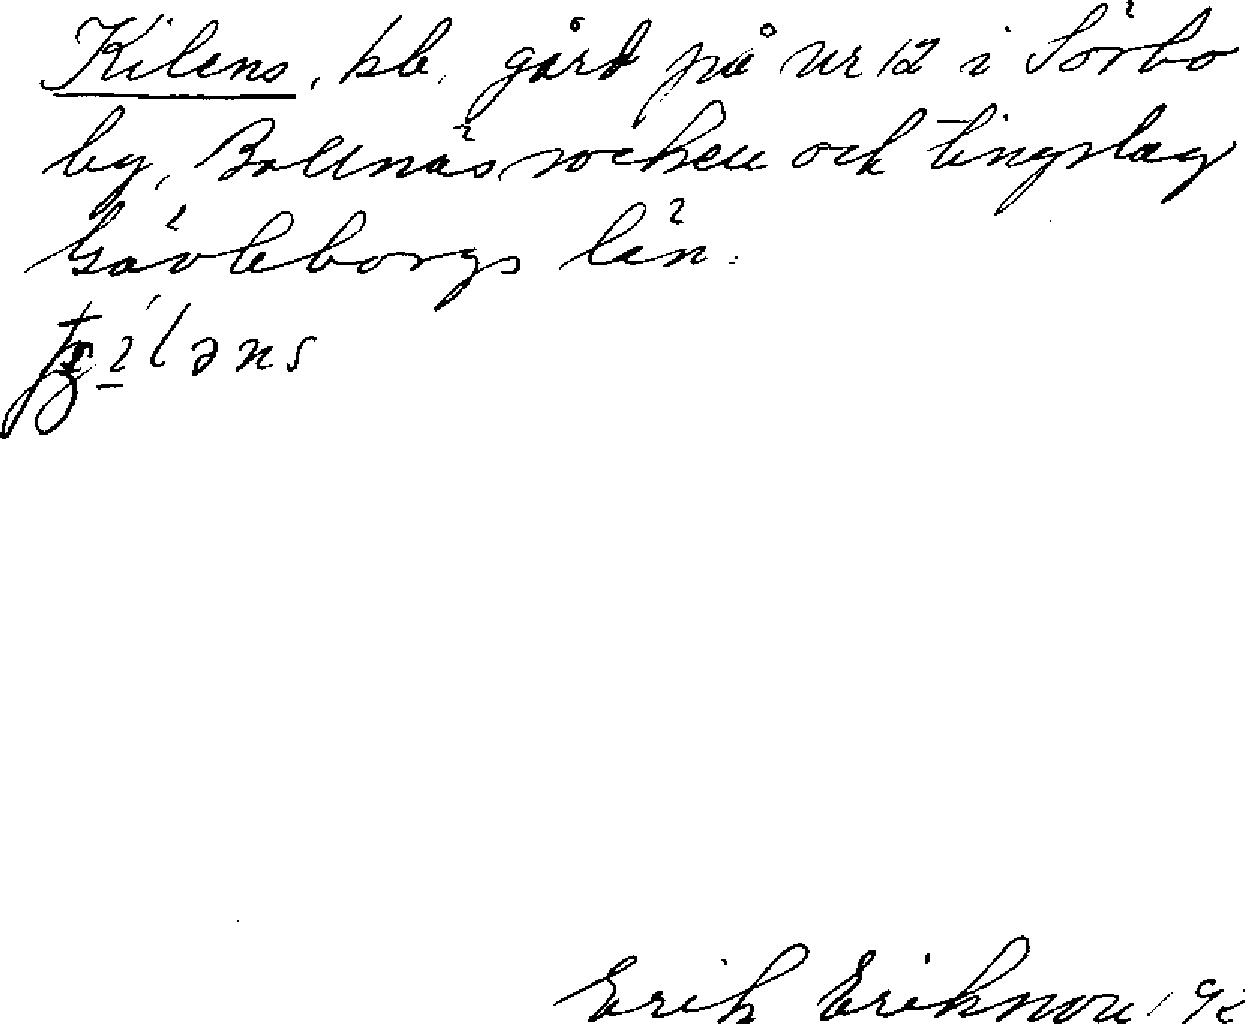 Kilens, kb. gård på nr 12 i Sörbo
by, Bollnäs socken och tingslag
Gävleborgs län.
Erik Eriksson